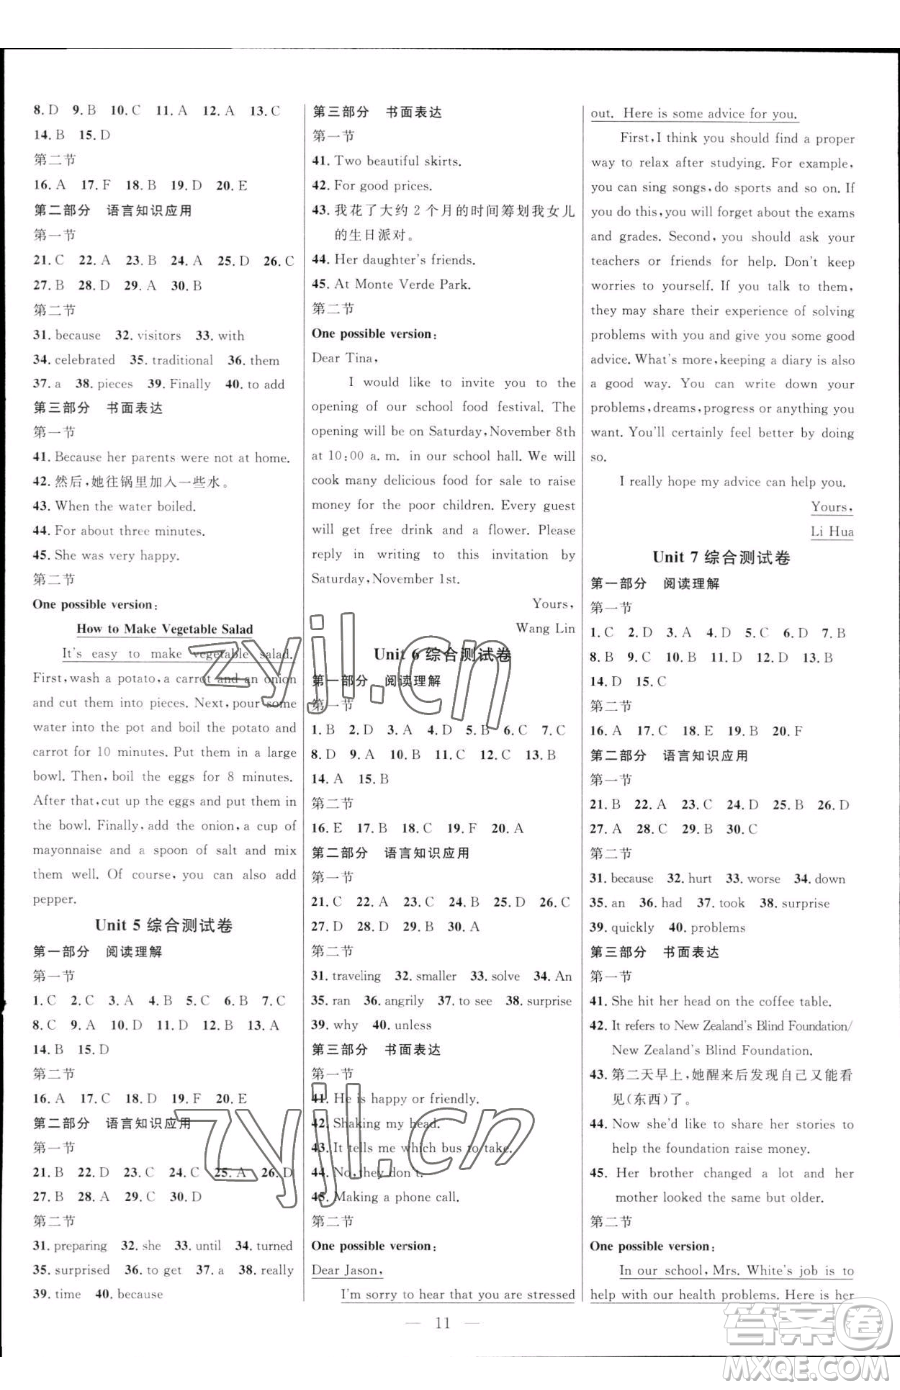 8. D 9. B 10. C 11. A 12. A 13. C
14. B 15. D
第二节
16. A 17. F 18. B 19. D 20. E
第二部分 语言知识应用
第一节
21. C 22. A 23. B 24. A 25. D 26. C
27. B 28. D 29. A 30. B
第二节
31. because 32. visitors 33. with
34. celebrated 35. traditional 36. them
37. a 38. pieces 39. Finally 40. to add
第三部分 书面表达
第一节
41. Because her parents were not at home.
42. 然后,她往锅里加入一些水。
43. When the water boiled.
44. For about three minutes.
45. She was very happy.
第二节
One possible version:
How to Make Vegetable Salad
It's easy to make vegetable salad.
First, wash a potato, a carrot and an onion
and cut them into pieces. Next, pour some
water into the pot and boil the potato and
carrot for 10 minutes. Put them in a large
bowl. Then, boil the eggs for 8 minutes.
After that, cut up the eggs and put them in
the bowl. Finally, add the onion, a cup of
mayonnaise and a spoon of salt and mix
them well. Of course, you can also add
pepper.
Unit 5 综合测试卷
第一部分 阅读理解
第一节
1. C 2. C 3. A 4. D 5. A 6. B 7. C
8. C 9. A 10. D 11. D 12. B 13. A
14. B 15. D
第二节
16. A 17. C 18. F 19. D 20. E
第二部分 语言知识应用
第一节
21. D 22. B 23. D 24. C 25. A 26. D
27. B 28. A 29. C 30. B
第二节
31. preparing 32. she 33. until 34. turned
35. surprised 36. to get 37. a 38. really
39. time 40. because
第三部分 书面表达
第一节
41. Two beautiful skirts.
42. For good prices.
43. 我花了大约 2 个月的时间筹划我女儿
的生日派对。
44. Her daughter's friends.
45. At Monte Verde Park.
第二节
One possible version:
Dear Tina,
I would like to invite you to the
opening of our school food festival. The
opening will be on Saturday, November 8th
at 10:00 a. m. in our school hall. We will
cook many delicious food for sale to raise
money for the poor children. Every guest
will get free drink and a flower. Please
reply in writing to this invitation by
Saturday, November 1st.
Yours,
Wang Lin
Unit 6 综合测试卷
第一部分 阅读理解
第一节
1. B 2. D 3. A 4. D 5. B 6. C 7. B
8. D 9. A 10. D 11. C 12. C 13. B
14. A 15. B
第二节
16. E 17. B 18. C 19. F 20. A
第二部分 语言知识应用
第一节
21. C 22. C 23. A 24. A 25. B 26. D
27. D 28. D 29. B 30. A
第二节
31. traveling 32. smaller 33. solve 34. An
35. ran 36. angrily 37. to see 38. surprise
39. why 40. unless
第三部分 书面表达
第一节
41. He is happy or friendly.
42. Shaking my head.
43. It tells me which bus to take.
44. No, they don't.
45. Making a phone call.
第二节
One possible version:
Dear Jason,
I'm sorry to hear that you are stressed
out. Here is some advice for you.
First, I think you should find a proper
way to relax after studying. For example,
you can sing songs, do sports and so on. If
you do this, you will forget about the exams
and grades. Second, you should ask your
teachers or friends for help. Don't keep
worries to yourself. If you talk to them,
they may share their experience of solving
problems with you and give you some good
advice. What's more, keeping a diary is also
a good way. You can write down your
problems, dreams, progress or anything you
want. You'll certainly feel better by doing
so.
I really hope my advice can help you.
Yours,
Li Hua
Unit 7 综合测试卷
第一部分 阅读理解
第一节
1. C 2. D 3. A 4. B 5. C 6. D 7. B
8. B 9. C 10. B 11. A 12. D 13. B
14. D 15. C
第二节
16. A 17. C 18. E 19. B 20. F
第二部分 语言知识应用
第一节
21. B 22. B 23. C 24. A 25. D 26. D
27. A 28. C 29. B 30. C
第二节
31. because 32. hurt 33. worse 34. down
35. an 36. had 37. took 38. surprise
39. quickly 40. problems
第三部分 书面表达
第一节
41. She hit her head on the coffee table.
42. It refers to New Zealand's Blind Foundation/
New Zealand's Blind Foundation.
43. 第二天早上,她醒来后发现自己又能看
见(东西)了。
44. Now she'd like to share her stories to
help the foundation raise money.
45. Her brother changed a lot and her
mother looked the same but older.
第二节
One possible version:
In our school, Mrs. White's job is to
help with our health problems. Here is her
— 11 —
zyjl.cn
zyjl.cn
答案圈
MXQE.COM